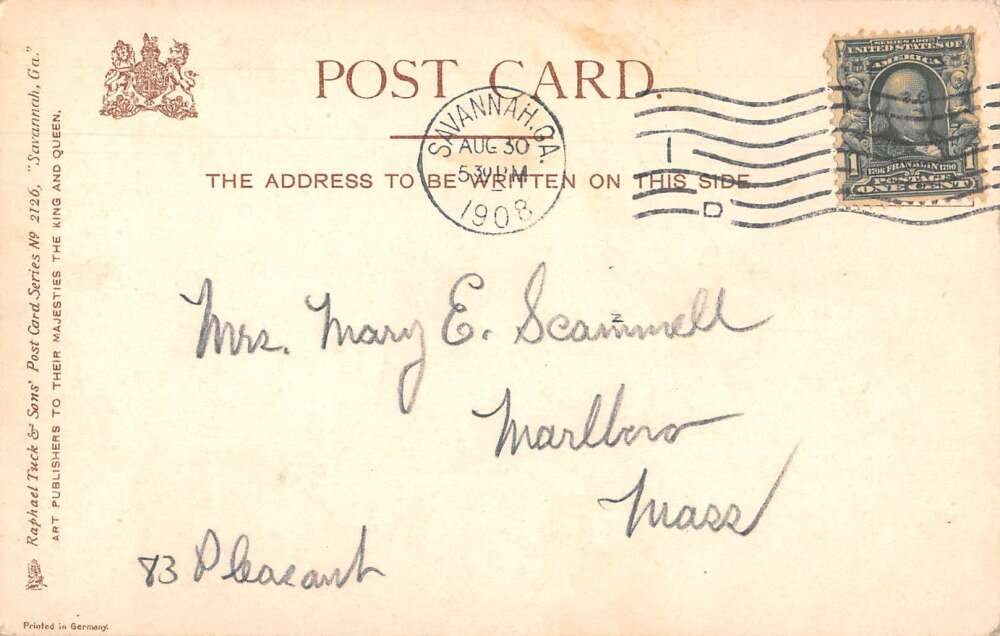 POST CARD.
THE ADDRESS TO BE WRITTEN ON THIS SIDE.
SAVANNAH, GA.
AUG 30
5 30 PM
1908
D
SERIES 1902
UNITED STATES OF
AMERICA
1706 FRANKLIN 1790
1 POSTAGE 1
ONE CENT
Mrs. Mary E. Scammell
Marlboro
Mass
83 Pleasant
Raphael Tuck & Sons' Post Card Series No 2126, "Savannah, Ga."
ART PUBLISHERS TO THEIR MAJESTIES THE KING AND QUEEN.
Printed in Germany.